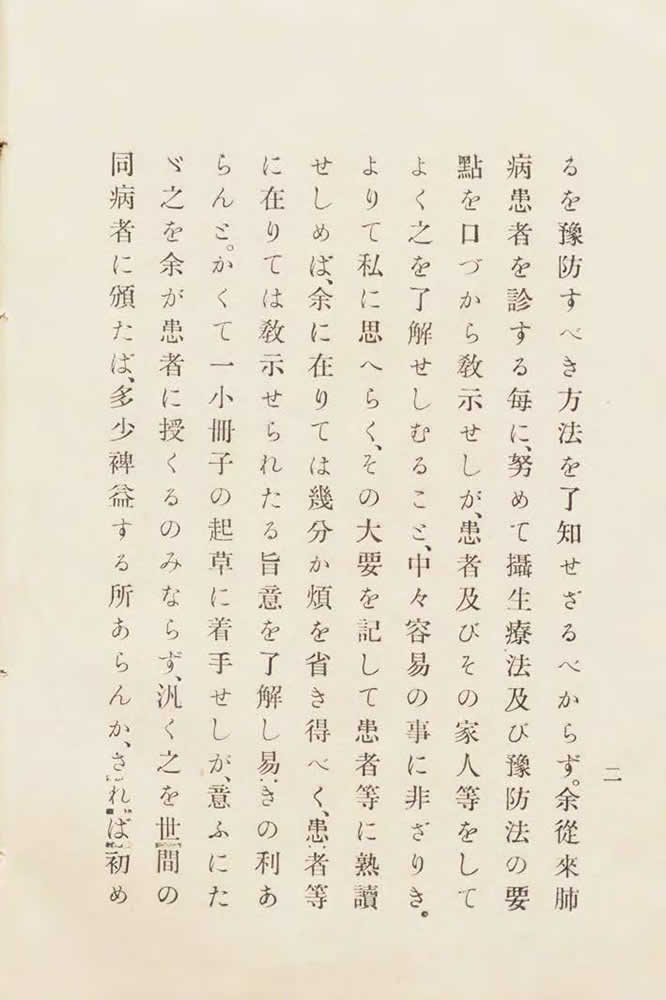 二
るを豫防すべき方法を了知せざるべからず。余從來肺
病患者を診する每に、努めて攝生療法及び豫防法の要
點を口づから敎示せしが、患者及びその家人等をして
よく之を了解せしむること、中々容易の事に非ざりき。
よりて私に思へらく、その大要を記して患者等に熟讀
せしめば、余に在りては幾分か煩を省き得べく、患者等
に在りては敎示せられたる旨意を了解し易きの利あ
らんと。かくて一小冊子の起草に着手せしが、意ふにた
ゞ之を余が患者に授くるのみならず、汎く之を世間の
同病者に頒たば、多少裨益する所あらんか、されば初め